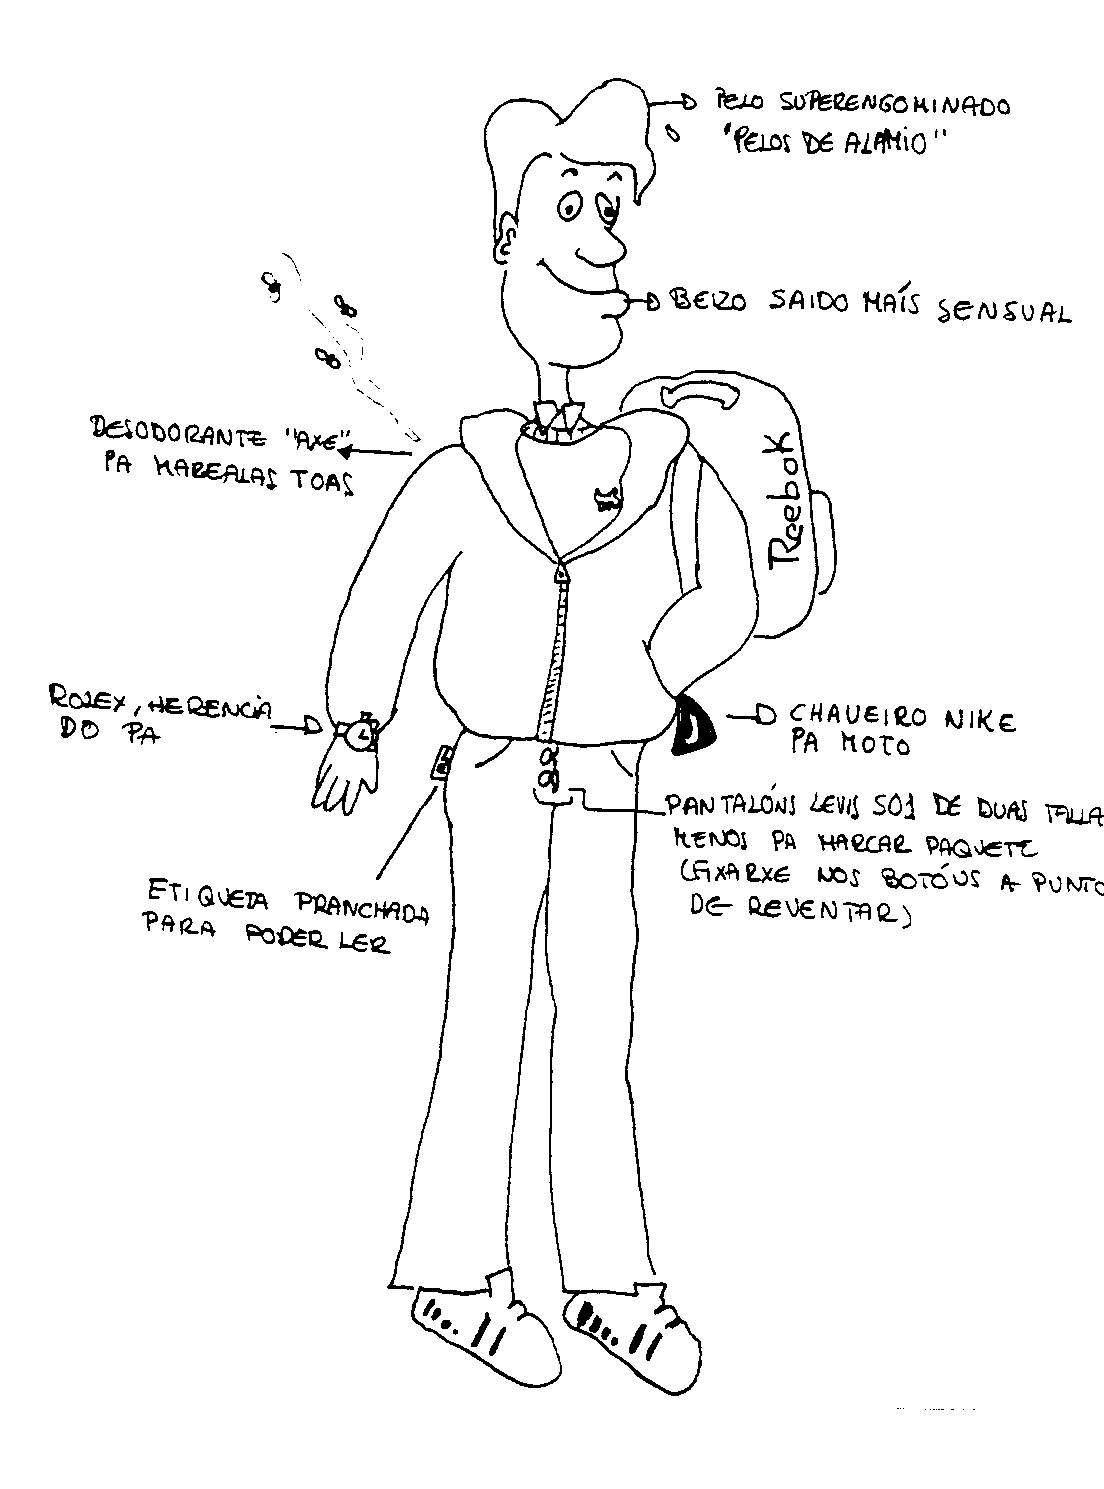 PELO SUPERENGOMINADO
"PELOS DE ALAMIO"
BEIZO SAIDO MAÍS SENSUAL
DESODORANTE "AXE"
PA MAREALAS TOAS
Reebok
ROLEX, HERENCIA
DO PA
CHAVEIRO NIKE
PA MOTO
PANTALÓNS LEVIS 501 DE DUAS TALLA
MENOS PA MARCAR PAQUETE
(FIXARXE NOS BOTÓNS A PUNTO
DE REVENTAR)
ETIQUETA PRANCHADA
PARA PODER LER